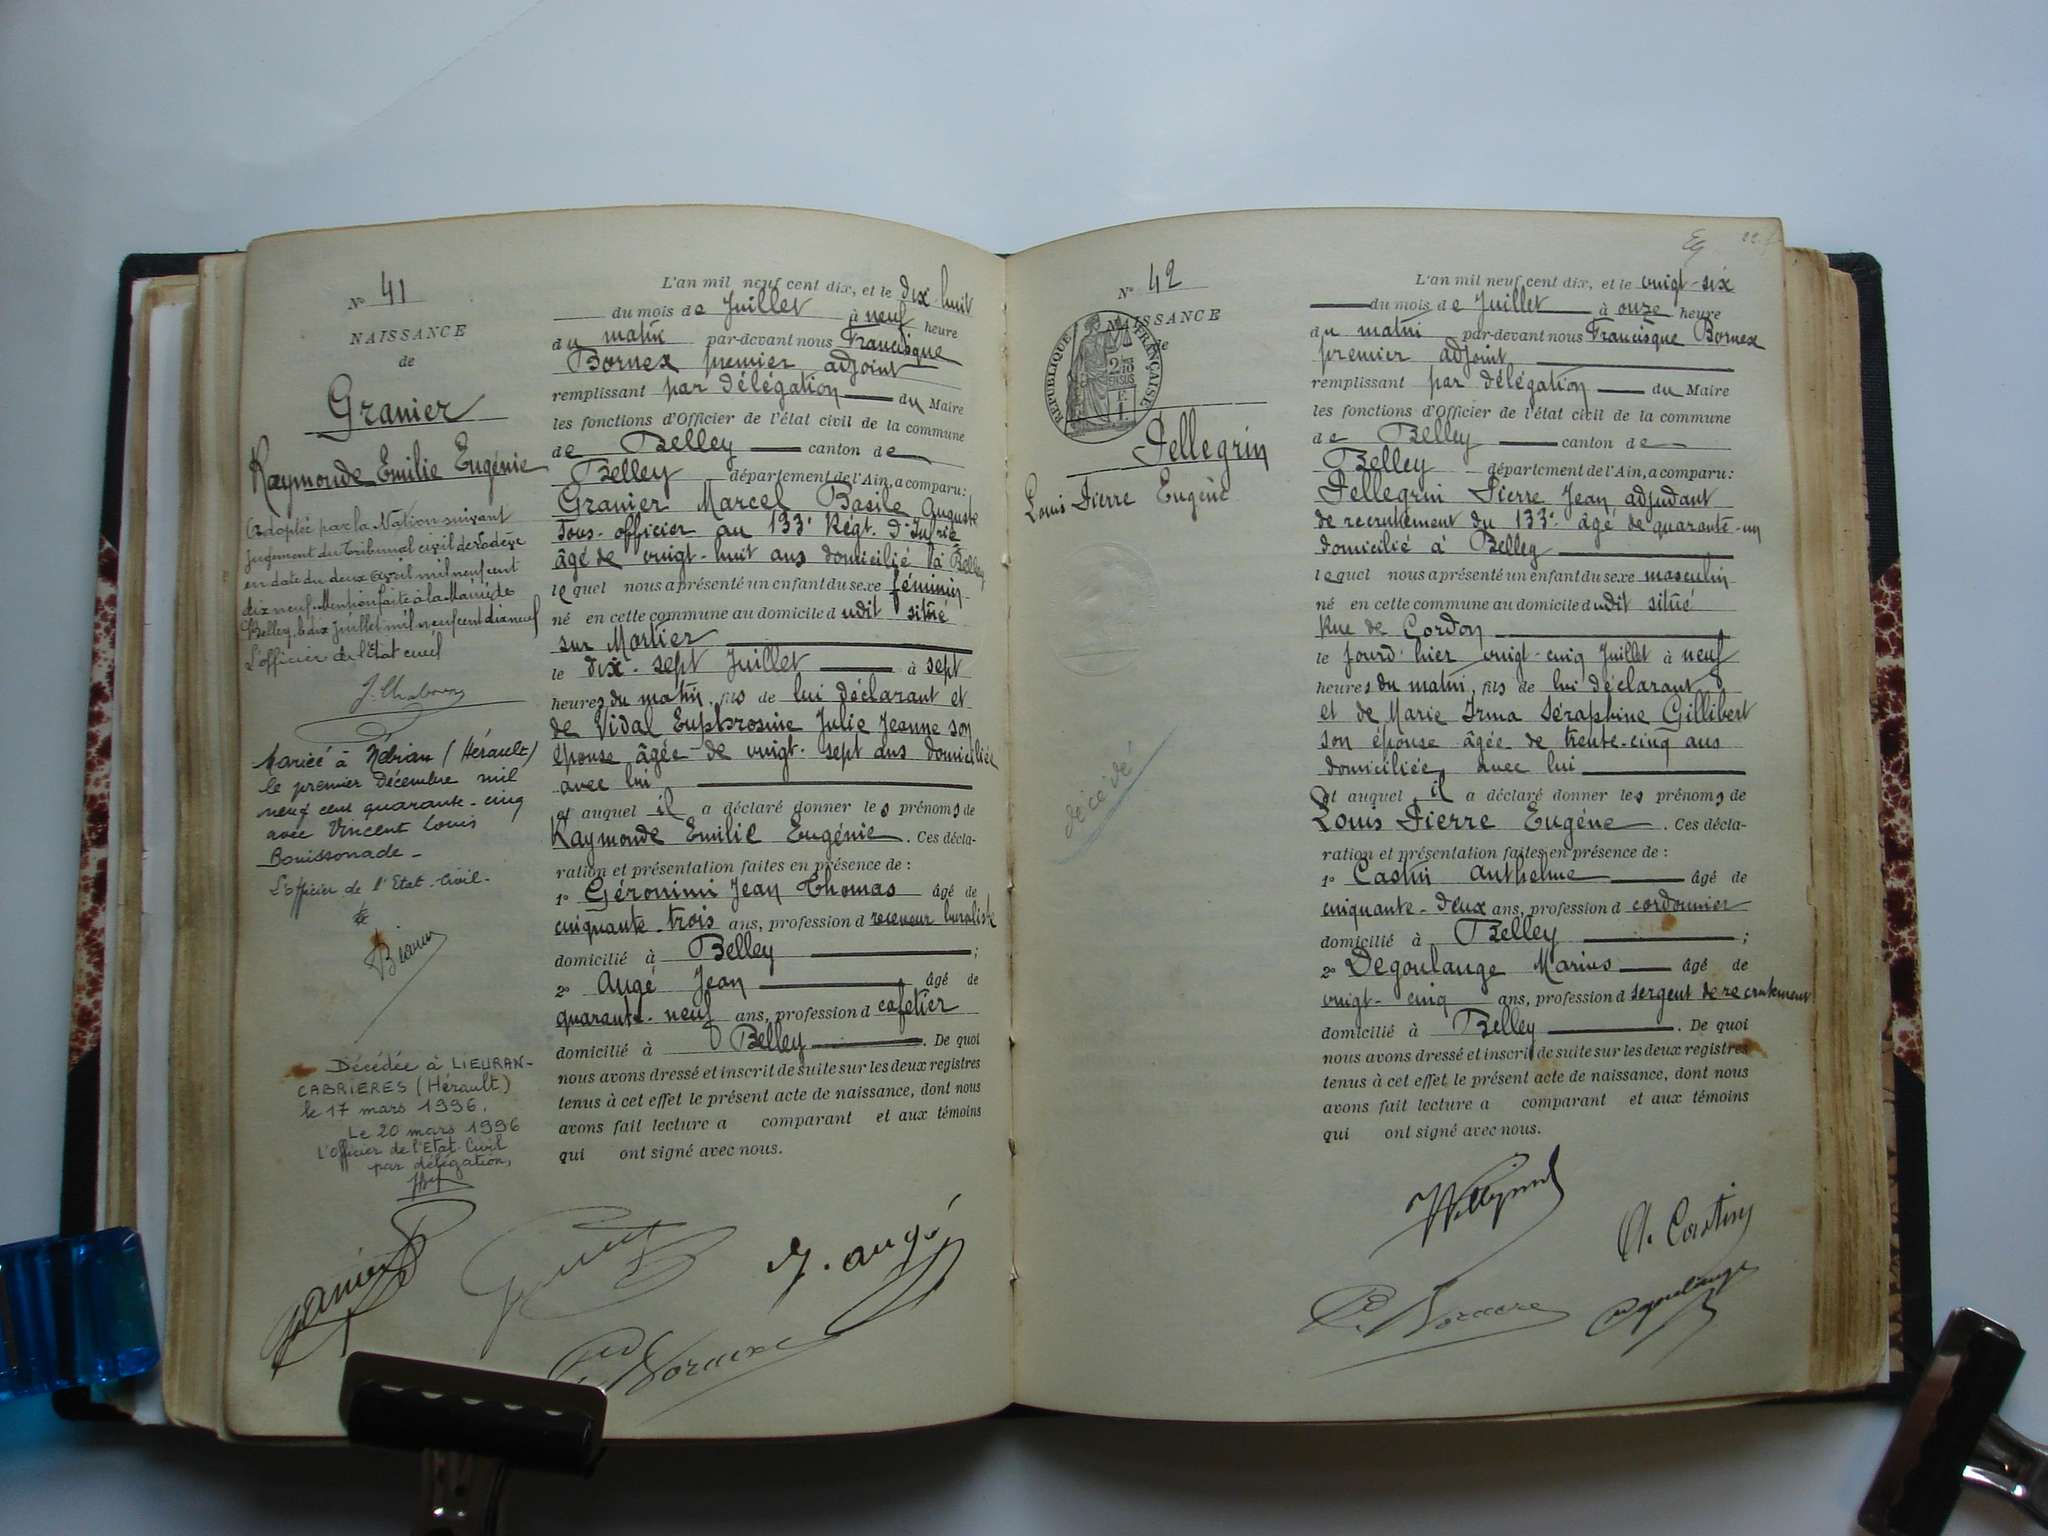 N° 41
NAISSANCE
de
Granier
Raymonde Emilie Eugénie
Adoptée par la Nation suivant
jugement du Tribunal civil de Lodève
en date du deux Avril mil neuf cent
dix neuf. Mention faite à la Mairie de
Belley, le dix Juillet mil neuf cent dix neuf
L'officier de l'Etat civil
J. Chabou
Mariée à Nébian (Hérault)
le premier Décembre mil
neuf cent quarante-cinq
avec Vincent Louis
Bouissonade -
L'officier de l'Etat-Civil.
Décédée à LIEURAN-
CABRIERES (Hérault)
le 17 mars 1996.
Le 20 mars 1996
L'Officier de l'Etat Civil
par délégation,
L'an mil neuf cent dix, et le dix-huit
du mois de Juillet à neuf heure
du matin par-devant nous Francisque
Bornex premier adjoint
remplissant par délégation du Maire
les fonctions d'Officier de l'état civil de la commune
de Belley canton de
Belley département de l'Ain, a comparu:
Granier Marcel Basile Auguste
Sous-officier au 133e Régt. D'Infrie
âgé de vingt-huit ans domicilié à Belley
lequel nous a présenté un enfant du sexe féminin
né en cette commune au domicile dudit situé
sur Morlier
le dix-sept Juillet à sept
heures du matin, fils de lui déclarant et
de Vidal Euphrosine Julie Jeanne son
épouse âgée de vingt-sept ans domiciliée
avec lui
et auquel il a déclaré donner les prénoms de
Raymonde Emilie Eugénie. Ces décla-
ration et présentation faites en présence de :
1° Géronimi Jean Thomas âgé de
cinquante-trois ans, profession d receveur buraliste
domicilié à Belley ;
2° Augé Jean âgé de
quarante-neuf ans, profession d cafetier
domicilié à Belley. De quoi
nous avons dressé et inscrit de suite sur les deux registres
tenus à cet effet le présent acte de naissance, dont nous
avons fait lecture a comparant et aux témoins
qui ont signé avec nous.
Granier
J. Augé
Bornex
N° 42
NAISSANCE
de
RÉPUBLIQUE FRANÇAISE
Pellegrin
Louis Pierre Eugène
décédé
L'an mil neuf cent dix, et le vingt-six
du mois de Juillet à onze heure
du matin par-devant nous Francisque Bornex
premier adjoint
remplissant par délégation du Maire
les fonctions d'Officier de l'état civil de la commune
de Belley canton de
Belley département de l'Ain, a comparu:
Pellegrin Pierre Jean adjudant
de recrutement du 133e âgé de quarante-un
domicilié à Belley
lequel nous a présenté un enfant du sexe masculin
né en cette commune au domicile dudit situé
Rue de Cordon
le jourd'hier vingt-cinq Juillet à neuf
heures du matin, fils de lui déclarant
et de Marie Irma Séraphine Gillibert
son épouse âgée de trente-cinq ans
domiciliée avec lui
et auquel il a déclaré donner les prénoms de
Louis Pierre Eugène. Ces décla-
ration et présentation faites en présence de :
1° Castin Anthelme âgé de
cinquante-deux ans, profession d cordonnier
domicilié à Belley ;
2° Degoulange Marius âgé de
vingt-cinq ans, profession d sergent de recrutement
domicilié à Belley. De quoi
nous avons dressé et inscrit de suite sur les deux registres
tenus à cet effet le présent acte de naissance, dont nous
avons fait lecture a comparant et aux témoins
qui ont signé avec nous.
Pellegrin
A. Castin
Bornex
Degoulange